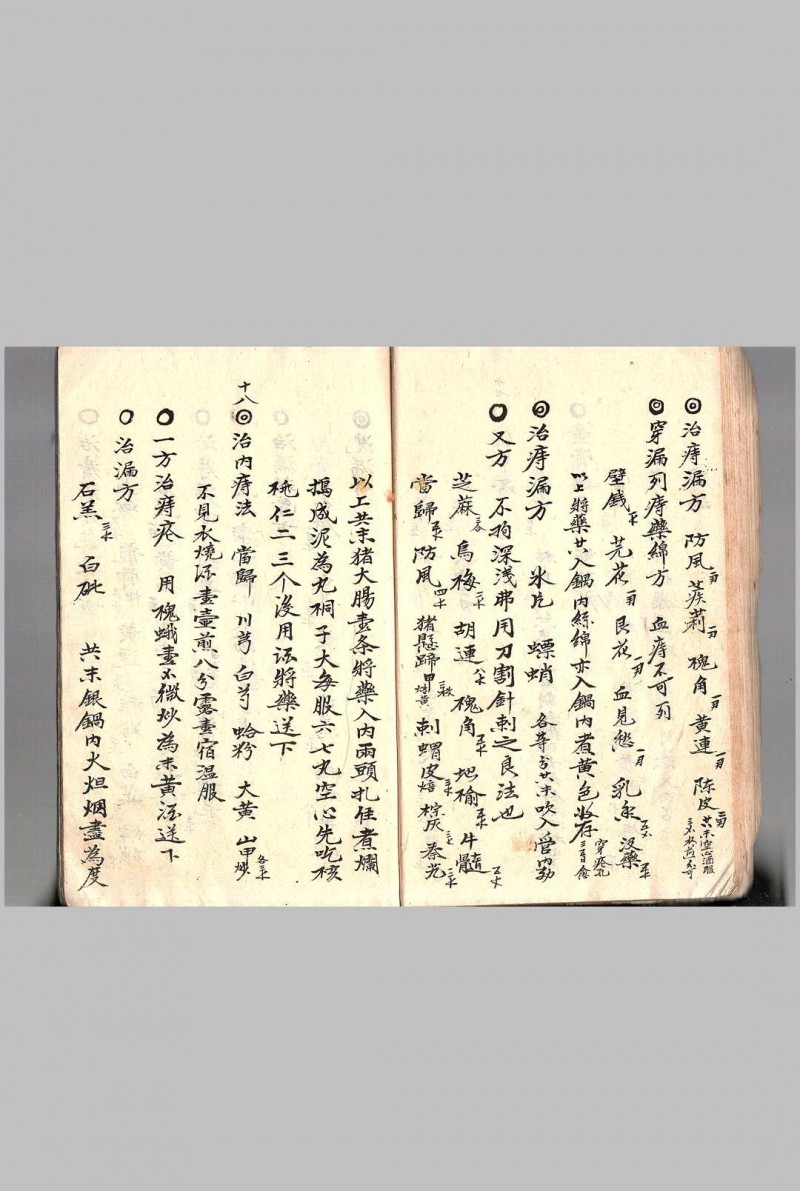 ◎治痔漏方 防風 蒺莉 槐角 黃連 陳皮 共末空心酒服
◎穿漏列痔藥綿方 血痔不可列
壁銭 芫花 艮花 血見愁 乳香 沒藥
以上將藥共入鍋內絲綿亦入鍋內煮黃色收存
◎治痔漏方 氷片 螵蛸 各等分共末吹入管內
○又方 不拘深浅弗用刀割針刺之良法也
芝蔴 烏梅 胡連 槐角 地榆 牛髓
當歸 防風 猪懸蹄甲 刺蝟皮焙 棕灰 秦艽
以上共末猪大腸壹条將藥入內兩頭扎住煮爛
搗成泥為丸桐子大每服六七丸空心先吃核
桃仁二三个後用酒將藥送下
十八
◎治內痔法 當歸 川芎 白芍 蛤粉 大黃 山甲炒
不見水燒酒壹壺煎八分露壹宿温服
○一方治痔瘡 用槐蛾壹不微炒為末黃酒送下
○治漏方
石羔 白砒 共末銀鍋內火烜烟盡為度